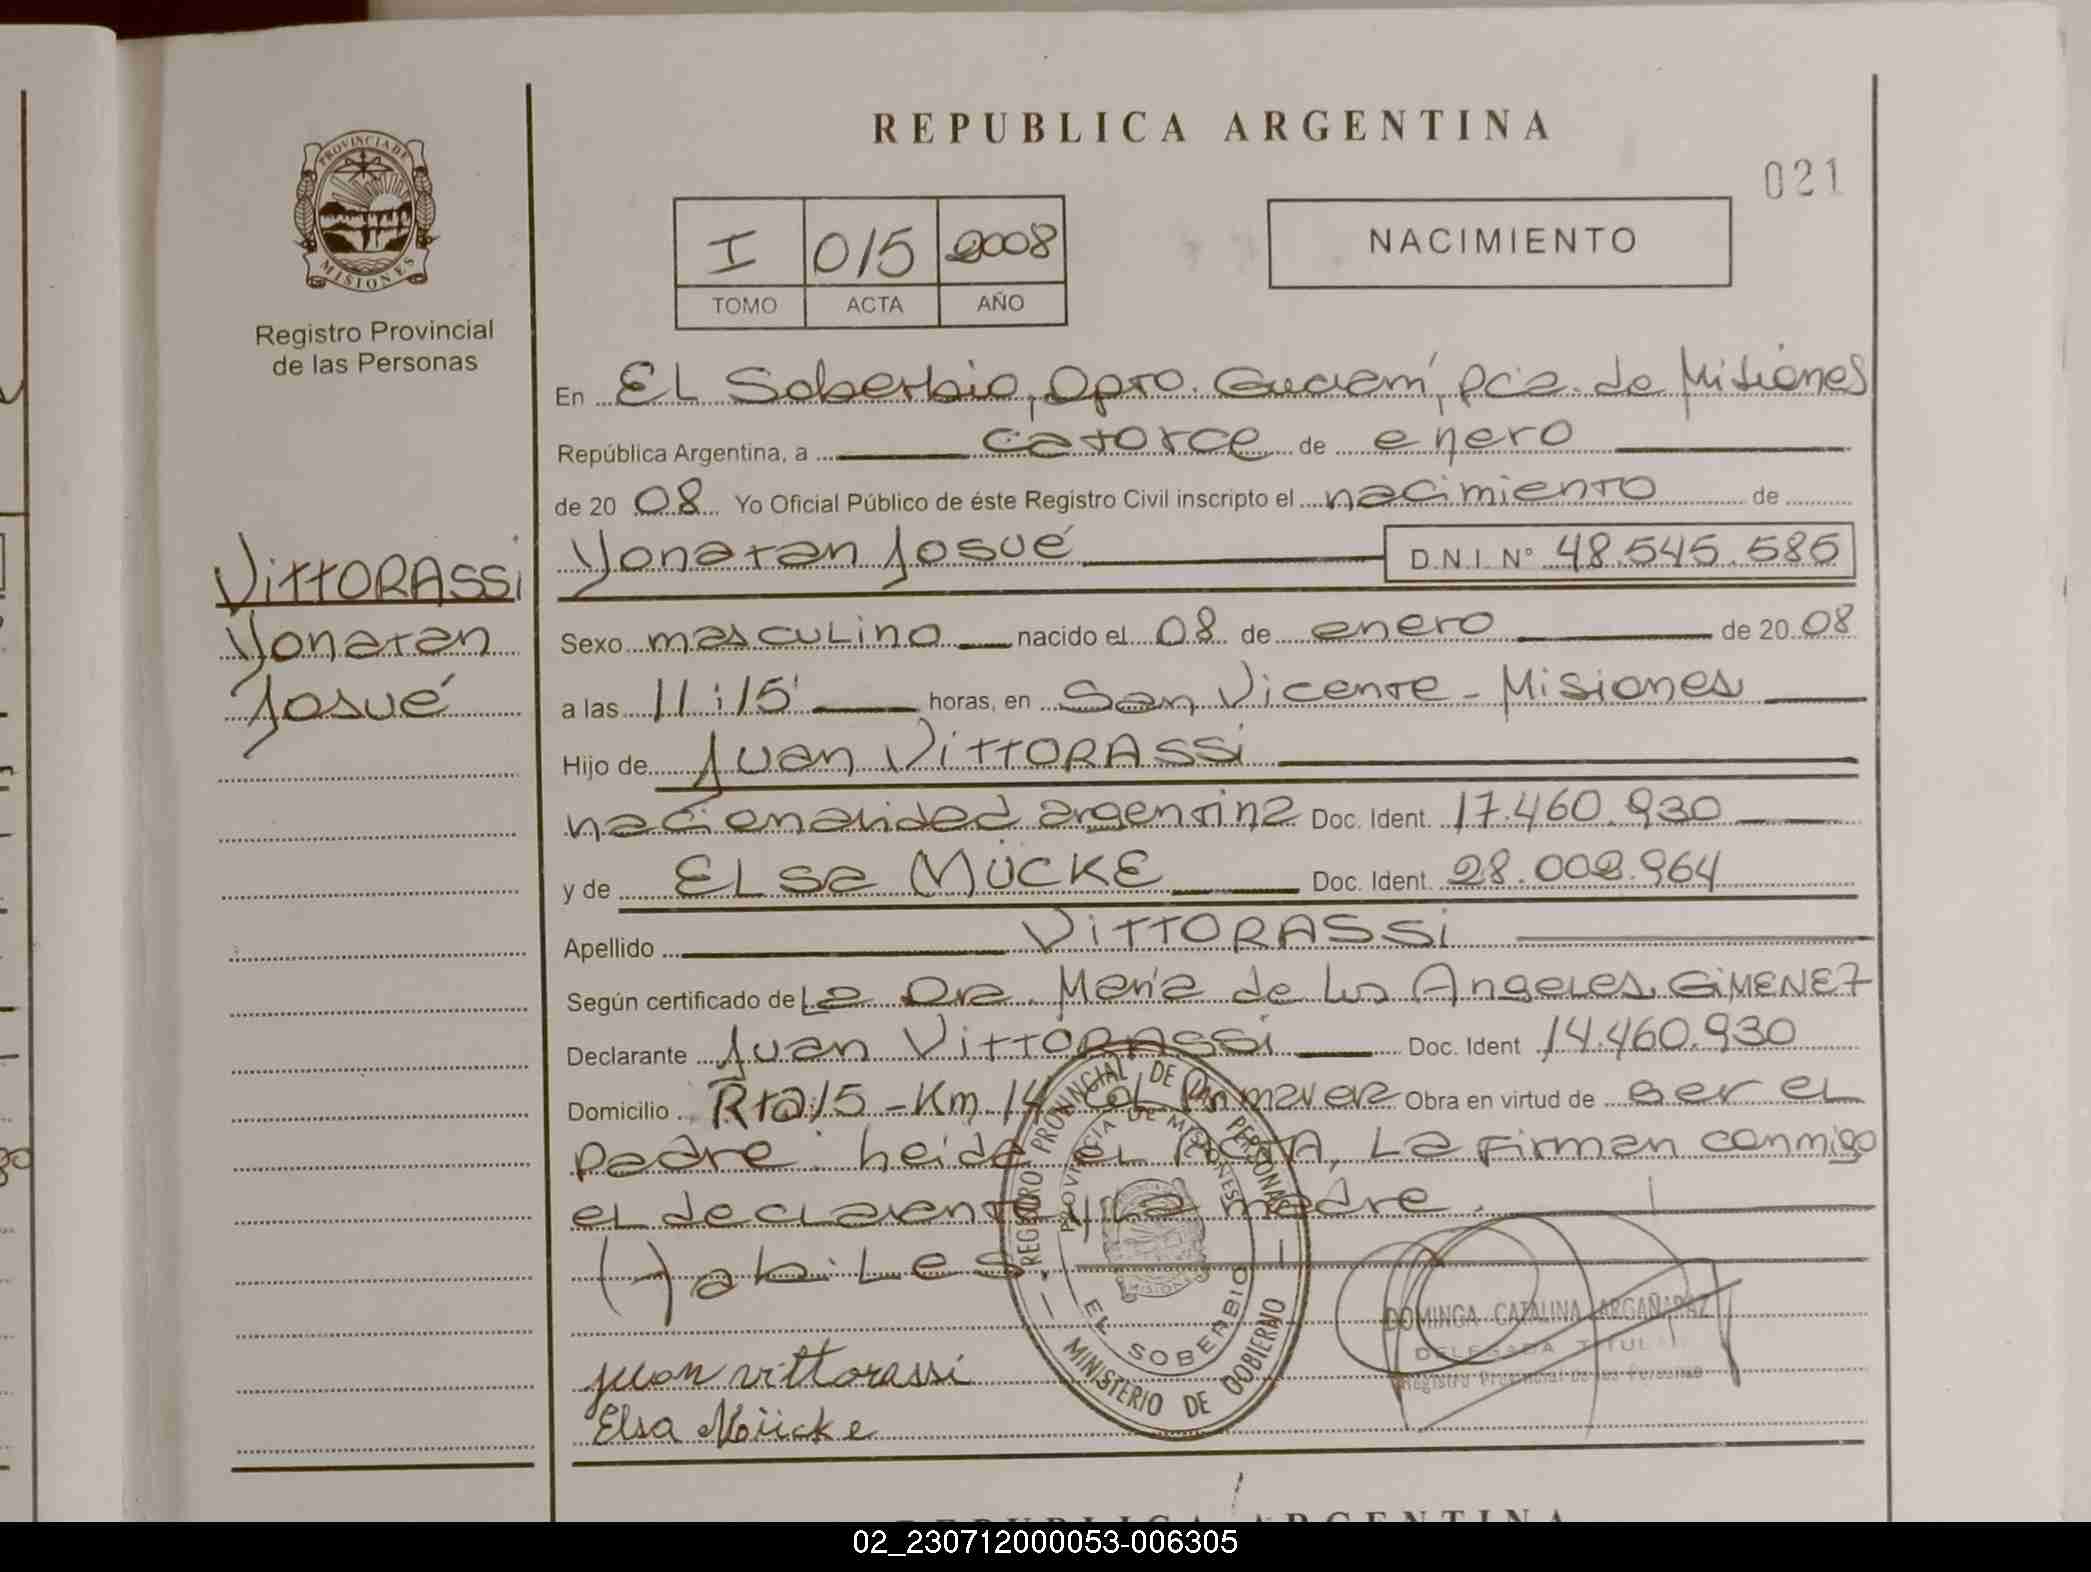 REPUBLICA ARGENTINA
021
PROVINCIA DE
MISIONES
Registro Provincial
de las Personas
I 015 2008
TOMO ACTA AÑO
NACIMIENTO
En EL Soberbio, Dpto. Guaraní, pcia. de Misiones
República Argentina, a catorce de enero
de 20 08 Yo Oficial Público de éste Registro Civil inscripto el nacimiento de
VITTORASSI
Yonatan
Josué
Yonatan Josué D.N.I. Nº 48.545.585
Sexo masculino nacido el 08 de enero de 20 08
a las 11:15' horas, en San Vicente - Misiones
Hijo de Juan VITTORASSI
nacionalidad argentina Doc. Ident. 17.460.930
y de ELSA MÜCKE Doc. Ident. 28.002.964
Apellido VITTORASSI
Según certificado de La Dra. María de Los Angeles GIMENEZ
Declarante Juan VITTORASSI Doc. Ident 14.460.930
Domicilio Rta 15 - Km. 14 Col. Primavera Obra en virtud de ser el
padre. heida el ACTA, La Firman conmigo
el declarente y La madre.
(-) abiles.
REGISTRO PROVINCIAL DE LAS PERSONAS
PROVINCIA DE MISIONES
EL SOBERBIO
MINISTERIO DE GOBIERNO
DOMINGA CATALINA ARGAÑARAZ
DELEGADA TITULAR
Registro Provincial de las Personas
juan vittorassi
Elsa Mücke
REPUBLICA ARGENTINA
02_230712000053-006305